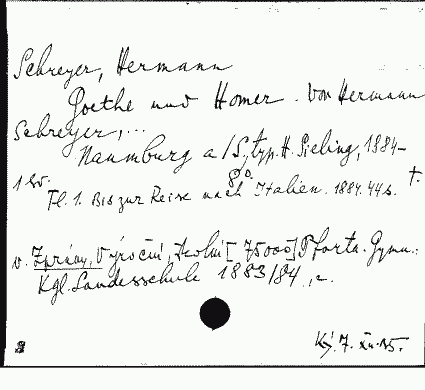 Schreyer, Hermann
Goethe und Homer. Von Hermann
Schreyer,...
Naumburg a/S, typ. H. Sieling, 1884-
1 sv. 8°. †.
Tl. 1. Bis zur Reise nach Italien. 1884. 44 s.
v. Zprávy, Výroční, školní [75000] Pforta. Gymn.:
Kgl. Landesschule 1883/84
Ký. 7. XII. 35.